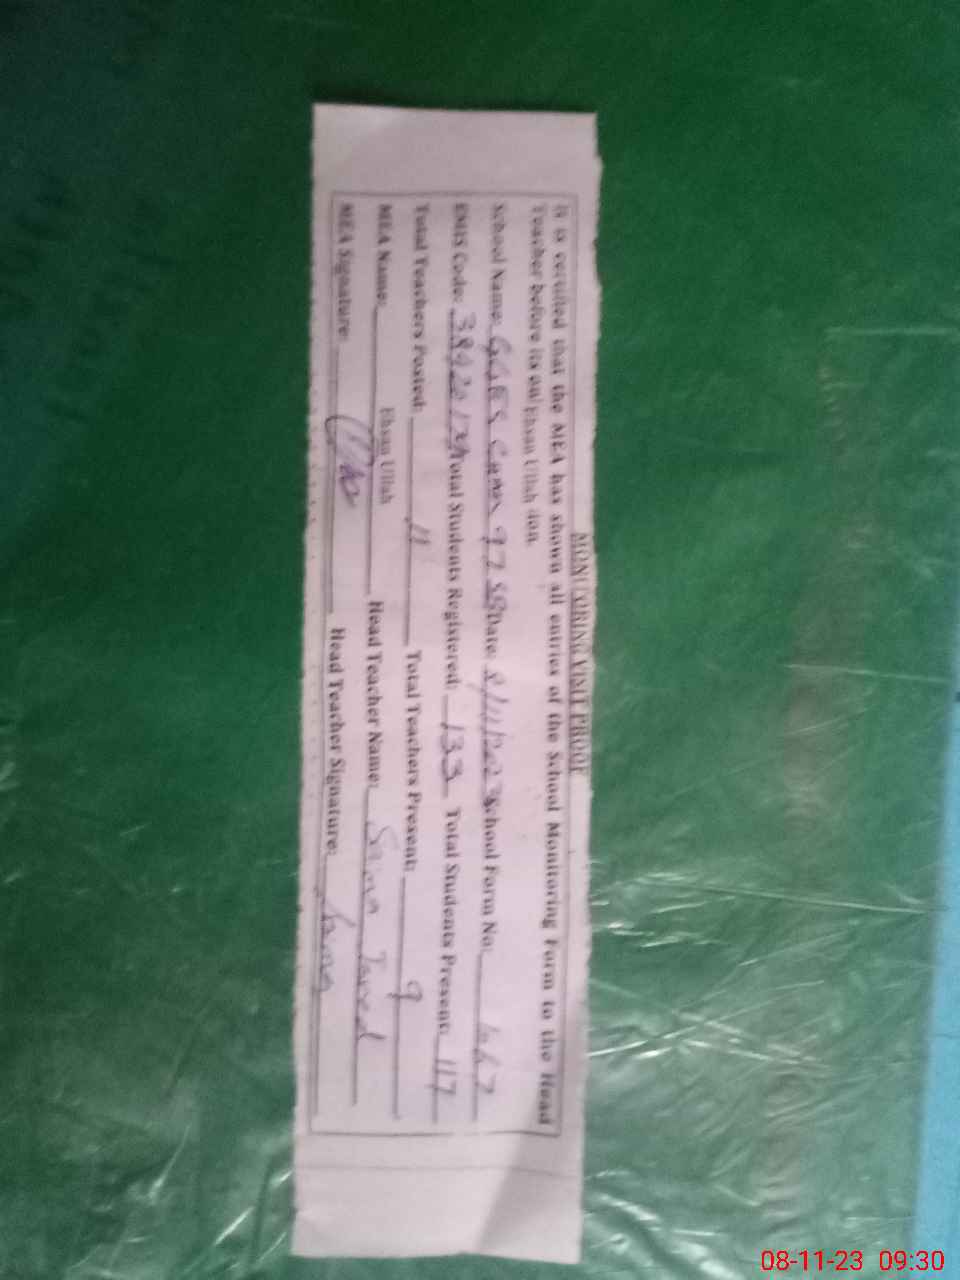 MONITORING VISIT PROOF
It is certified that the MEA has shown all entries of the School Monitoring Form to the Head
Teacher before its onl Ehsan Ullah ion.
School Name: GGES Chak 97 SB Date: 8/11/2023 School Form No:
EMIS Code: Total Students Registered: 133 Total Students Present: 117
Total Teachers Posted: 11 Total Teachers Present: 9
MEA Name: Ehsan Ullah Head Teacher Name: Saima Javed
MEA Signature: Head Teacher Signature: Saima
08-11-23 09:30